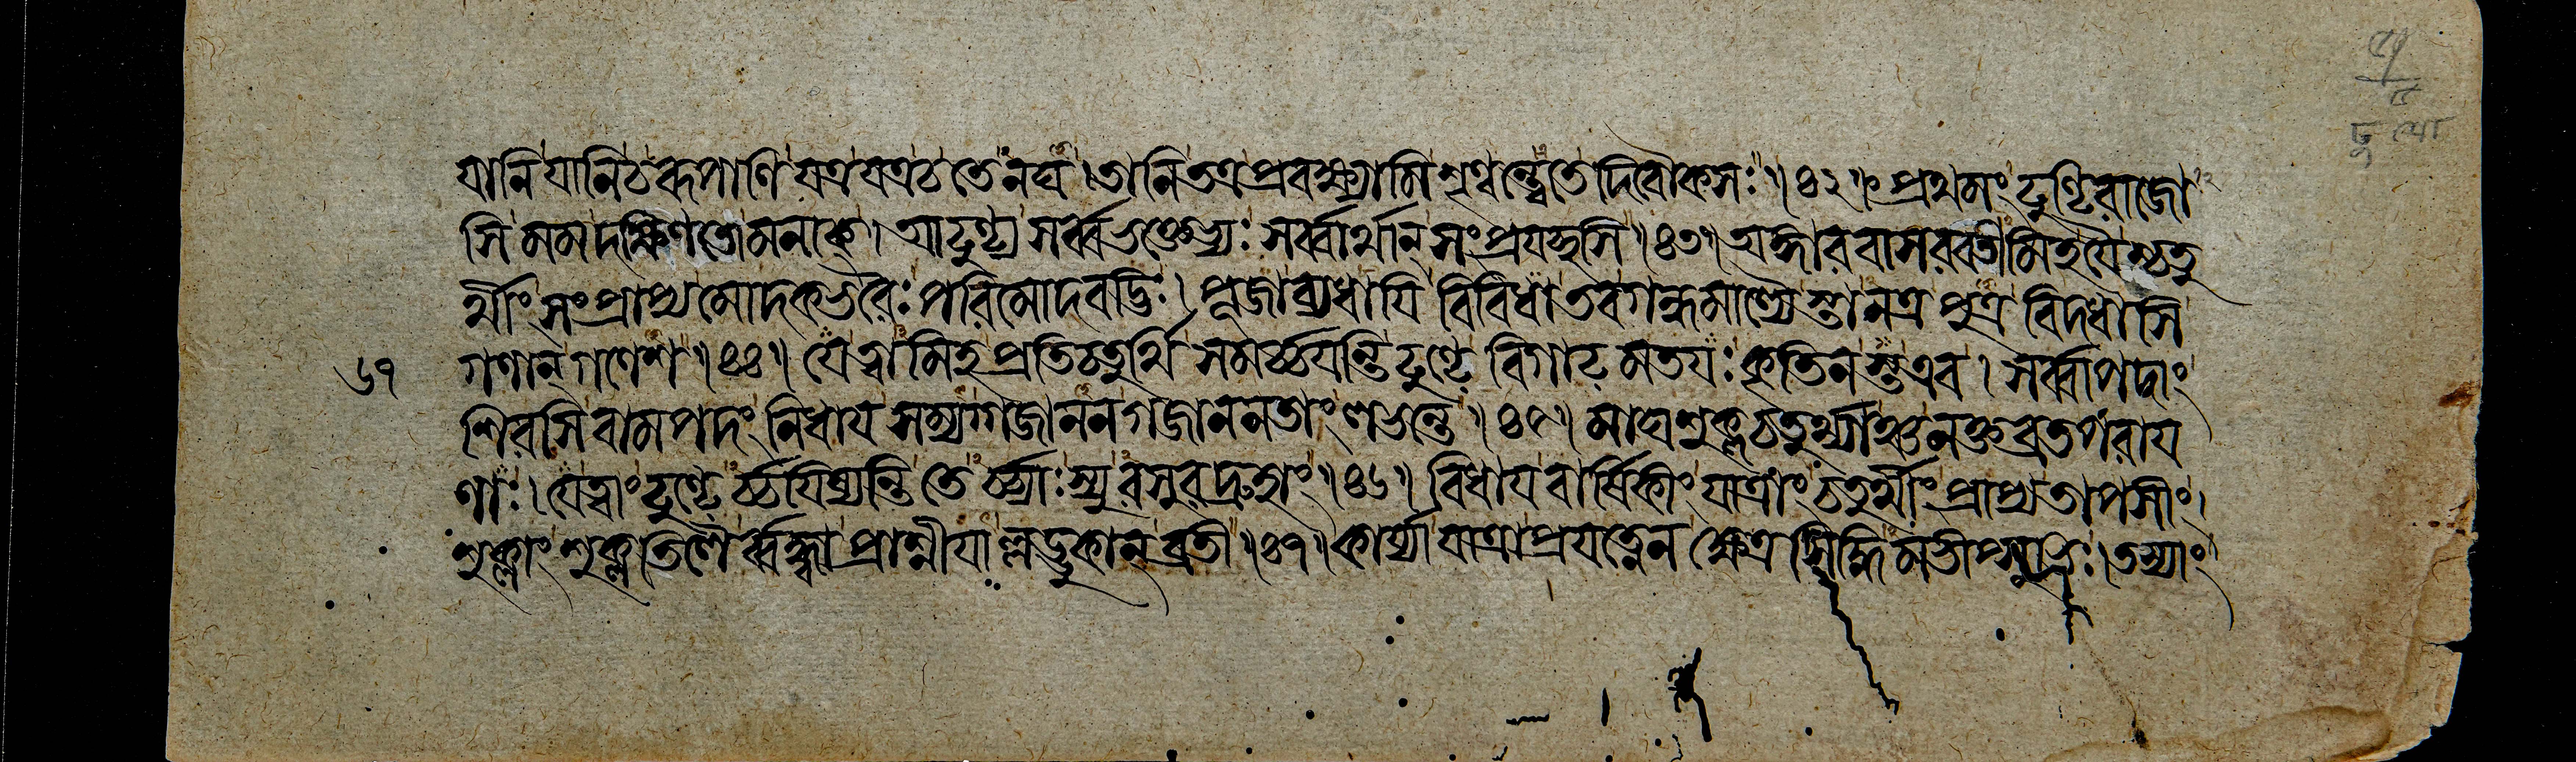 যানি যানি চ রূপাণি যত্র যত্র চ তেনঘ । তানি তত্র প্রবক্ষ্যামি শৃণ্বন্ত্বেতে দিবৌকসঃ ॥ ৪২ ॥ প্রথমং ঢুণ্ঢিরাজো
সি মম দক্ষিণতো মনাক্ । আঢুণ্ঢ্য সর্ব্বভক্তেভ্যঃ সর্ব্বার্থান্ সংপ্রযচ্ছসি ॥ ৪৩ ॥ অঙ্গারবাসরবতীমিহ যৈশ্চতু
র্থীং সংপ্রাপ্য মোদকভরৈঃ পরিমোদবদ্ভিঃ । পূজা ব্যধাযি বিবিধা তব গন্ধমাল্যৈস্তানত্র পুত্র বিদধাসি
৬৭ গণান্ গণেশ ॥ ৪৪ ॥ যে ত্বামিহ প্রতিচতুর্থি সমর্চ্চযন্তি ঢুণ্ঢে বিগাঢমতযঃ কৃতিনস্ত এব । সর্ব্বাপদাং
শিরসি বামপদং নিধায সম্যগ্গজানন গজাননতাং লভন্তে ॥ ৪৫ ॥ মাঘশুক্লচতুর্থ্যাঞ্চ নক্তব্রতপরায
ণাঃ । যে ত্বাং ঢুণ্ঢের্চ্চযিষ্যন্তি তের্চ্চ্যাঃ স্যুরসুরদ্রুহাং ॥ ৪৬ ॥ বিধায বার্ষিকীং যাত্রাং চতুর্থীং প্রাপ্য তাপসীং ।
শুক্লাং শুক্লতিলৈর্ব্বদ্ধ্বা প্রাশ্নীযাল্লড্ডুকান্ ব্রতী ॥ ৪৭ ॥ কার্য্যা যাত্রা প্রযত্নেন ক্ষেত্রসিদ্ধিমভীপ্সুভিঃ । তস্যাং